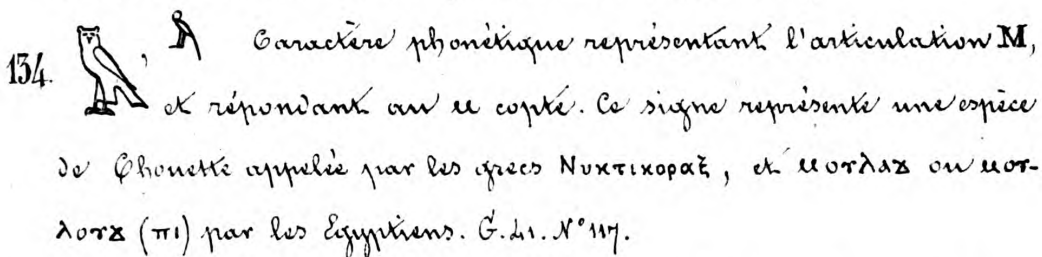 134. 𓅓, 𓅓 Caractère phonétique représentant l'articulation M,
et répondant au ⲙ copte. Ce signe représente une espèce
de Chouette appelée par les grecs Νυκτικοραξ, et ⲙⲟⲩⲗⲁϫ ou ⲙⲟⲩ-
ⲗⲟⲩϫ (ⲡⲓ) par les Egyptiens. G. 41. N° 117.